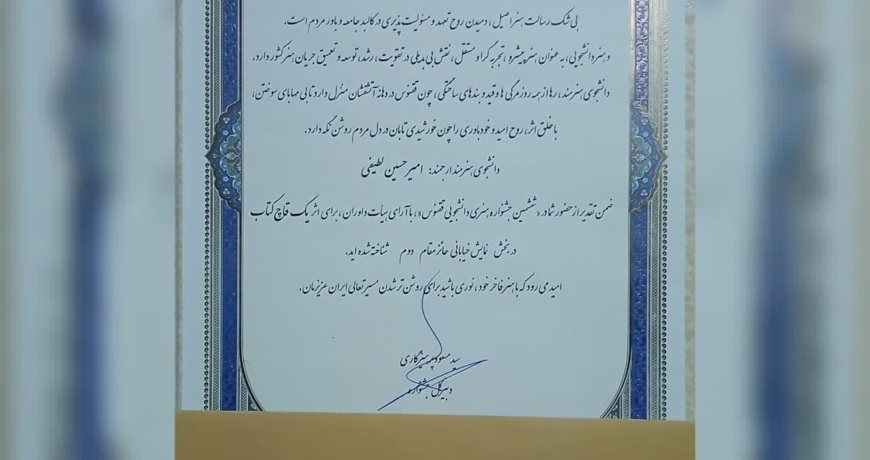 بی شک رسالت هنر اصیل، دمیدن روح تعهد و مسئولیت پذیری در کالبد جامعه و باور مردم است.
و هنر دانشجویی، به عنوان هنر پیشرو، تجربه گرا و مستقل، نقش بی بدیلی در تقویت، رشد، توسعه و تعمیق جریان هنر کشور دارد.
دانشجوی هنرمند، رها از همه روزمرگی ها و قید و بندهای ساختگی، چون ققنوس در دهانه آتشفشان منزل دارد تا بی مهابای سوختن،
با خلق اثر، روح امید و خودباوری را چون خورشیدی تابان در دل مردم روشن نگه دارد.
دانشجوی هنرمند ارجمند: امیرحسین لطیفی
ضمن تقدیر از حضور شما در «ششمین جشنواره هنری دانشجویی ققنوس»، با آرای هیأت داوران، برای اثر یک قاچ کتاب
در بخش نمایش خیابانی حائز مقام دوم شناخته شده اید.
امید می رود که با هنر فاخر خود، نوری باشید برای روشن تر شدن مسیر تعالی ایران عزیزمان.
سید مسعود
دبیر کل جشنواره